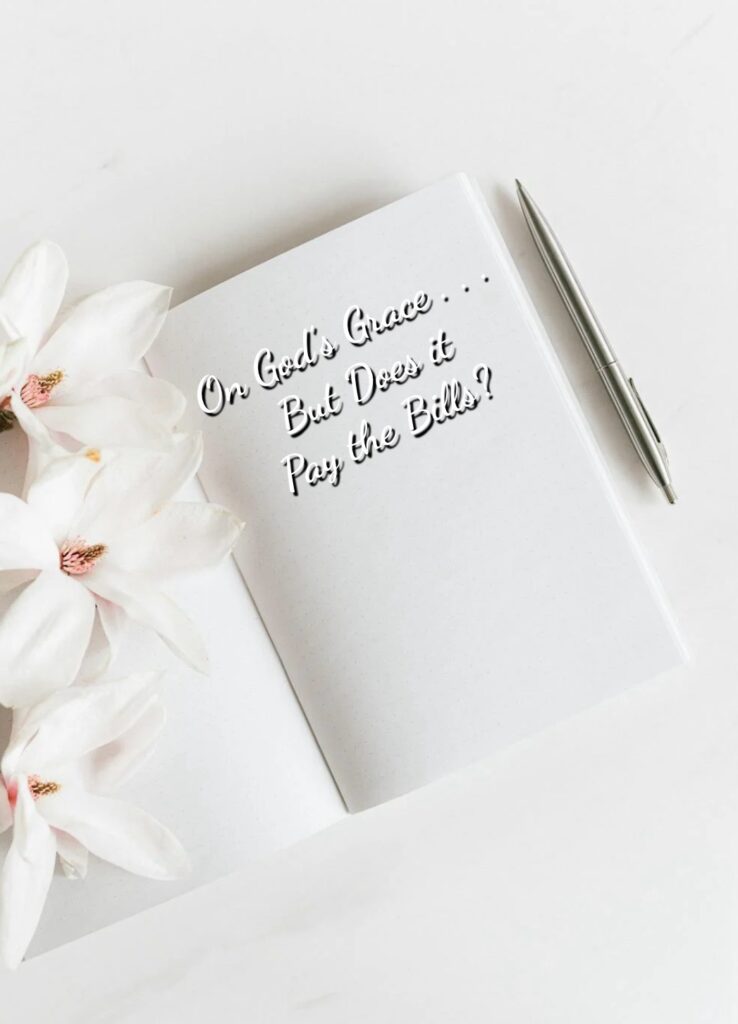 On God's Grace . . .
But Does it
Pay the Bills?